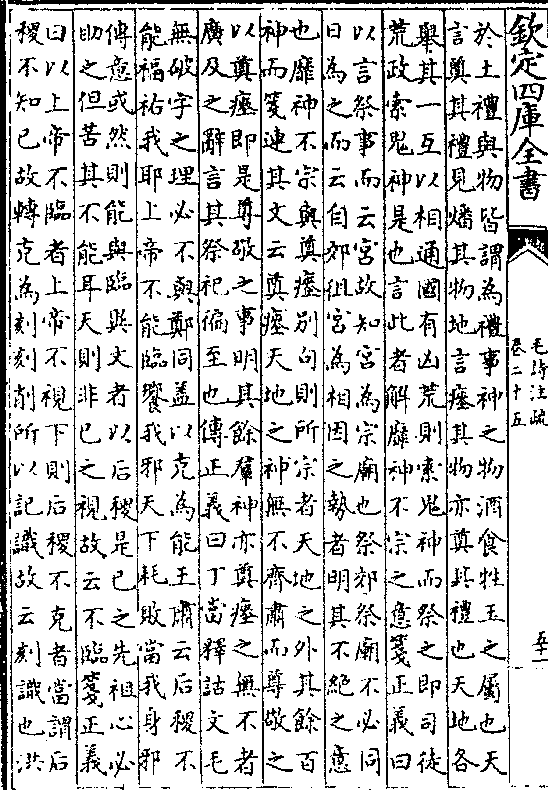 欽定四庫全書
毛詩注疏
卷二十五
五十一
於土禮與物皆謂為禮事神之物酒食牲玉之屬也天
言奠其禮見燔其物地言瘞其物亦奠其禮也天地各
舉其一互以相通國有凶荒則索鬼神而祭之即司徒
荒政索鬼神是也言此者解靡神不宗之意箋正義曰
以言祭事而云宮故知宮為宗廟也祭郊祭廟不必同
日為之而云自郊徂宮為相因之勢者明其不絕之意
也靡神不宗與奠瘞別句則所宗者天地之外其餘百
神而箋連其文云奠瘞天地之神無不齊肅而尊敬之
以奠瘞即是尊敬之事明其餘羣神亦奠瘞之無不者
廣及之辭言其祭祀徧至也傳正義曰丁當釋詁文毛
無破字之理必不與鄭同盖以克為能王肅云后稷不
能福祐我耶上帝不能臨饗我邪天下耗敗當我身邪
傳意或然則能與臨異文者以后稷是已之先祖心必
助之但苦其不能耳天則非已之視故云不臨箋正義
曰以上帝不臨者上帝不視下則后稷不克者當謂后
稷不知已故轉克為刻刻削所以記識故云刻識也洪